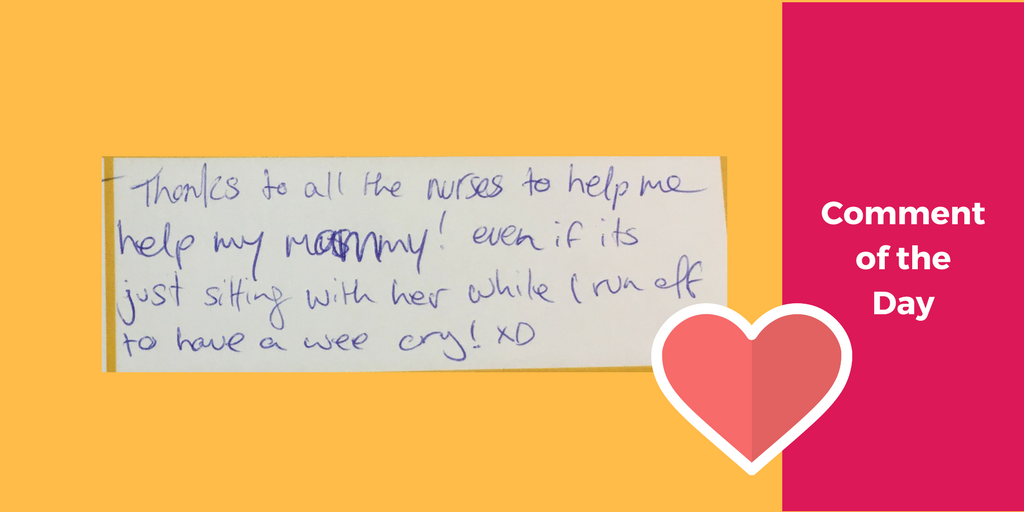 - Thanks to all the nurses to help me
help my mammy! even if its
just sitting with her while I run off
to have a wee cry! XD
Comment
of the
Day